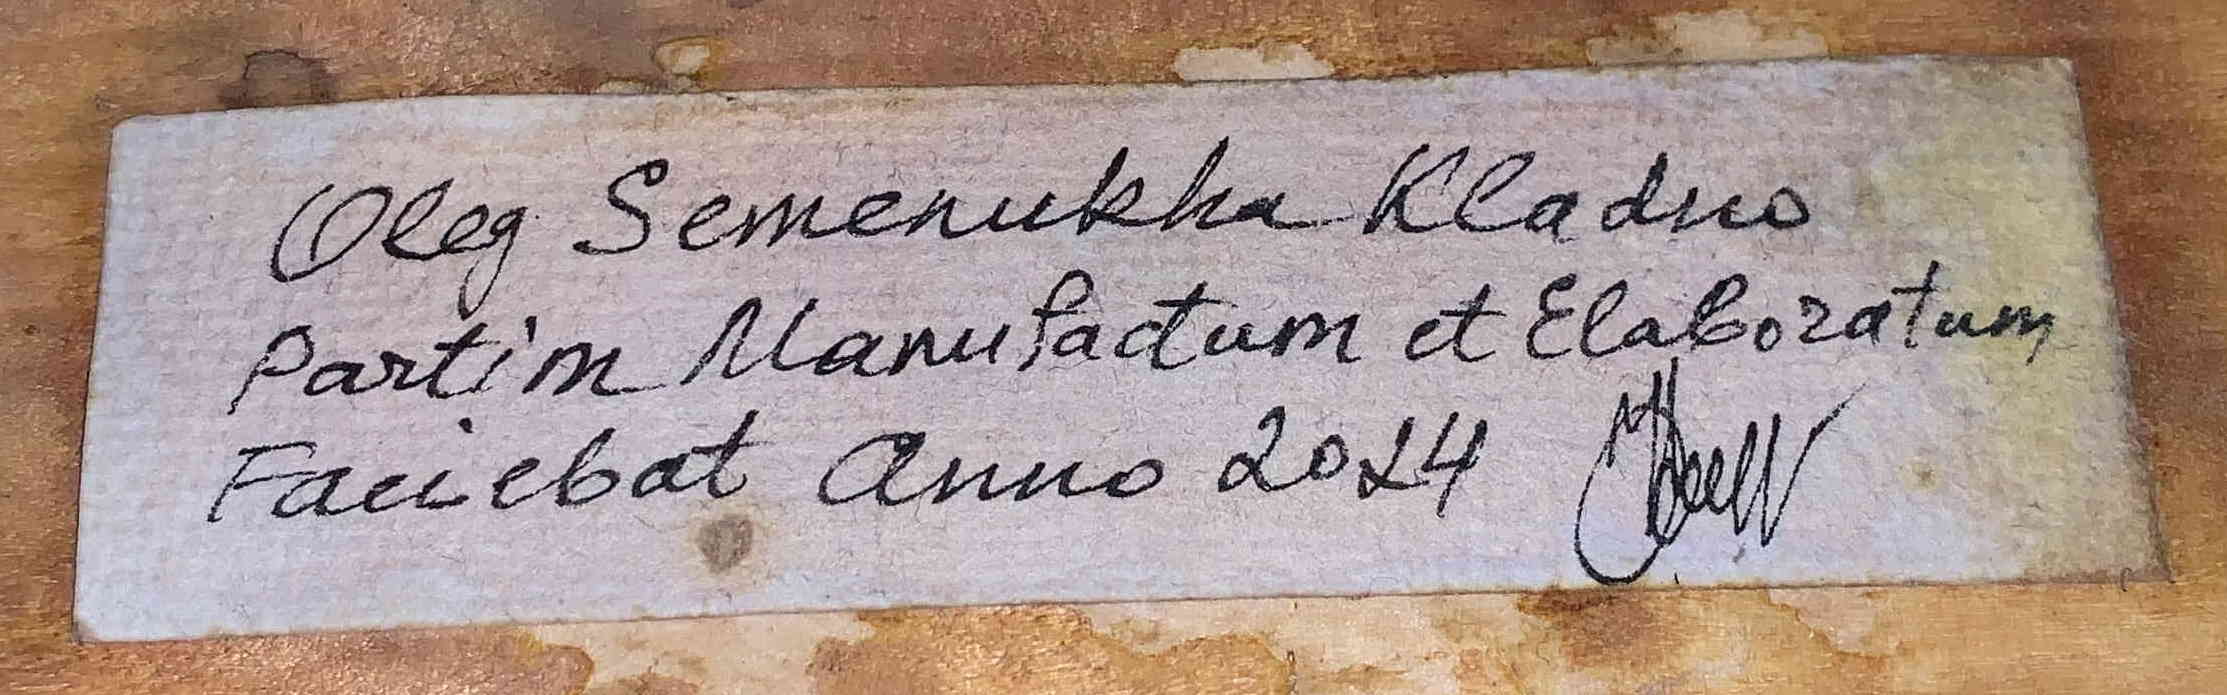 Oleg Semenukha Kladno
Partim Manufactum et Elaboratum
Faciebat Anno 2024